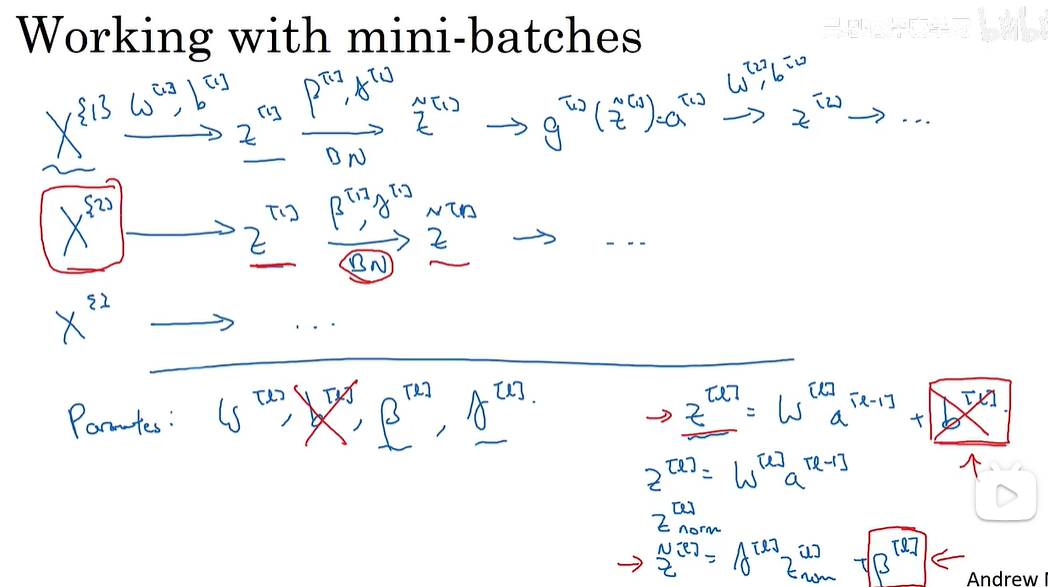 Working with mini-batches
X^{1} W^[1], b^[1] → z^[1] β^[1], γ^[1] → BN z̃^[1] → g^[1](z̃^[1]) = a^[1] W^[2], b^[2] → z^[2] → ...
X^{2} → z^[1] β^[1], γ^[1] → BN z̃^[1] → ...
X^{3} → ...
Parameters: W^[l], b^[l], β^[l], γ^[l].
→ z^[l] = W^[l] a^[l-1] + b^[l]
z^[l] = W^[l] a^[l-1]
z^[l]norm
→ z̃^[l] = γ^[l] z^[l]norm + β^[l] ←
Andrew